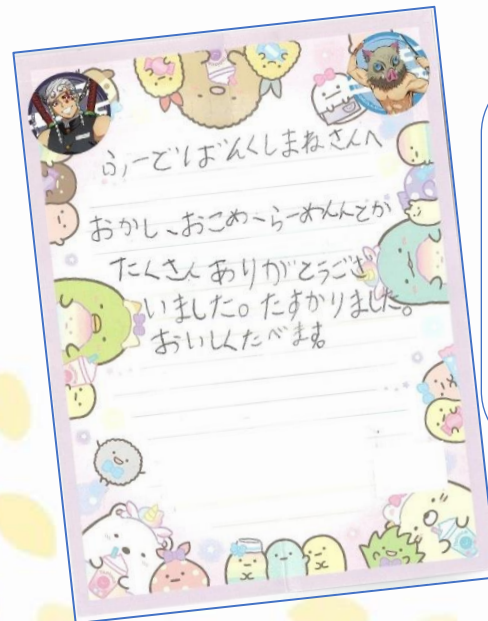 ふーどばんくしまねさんへ
おかし、おこめ、らーめんとか
たくさんありがとうござ
いました。たすかりました。
おいしくたべます